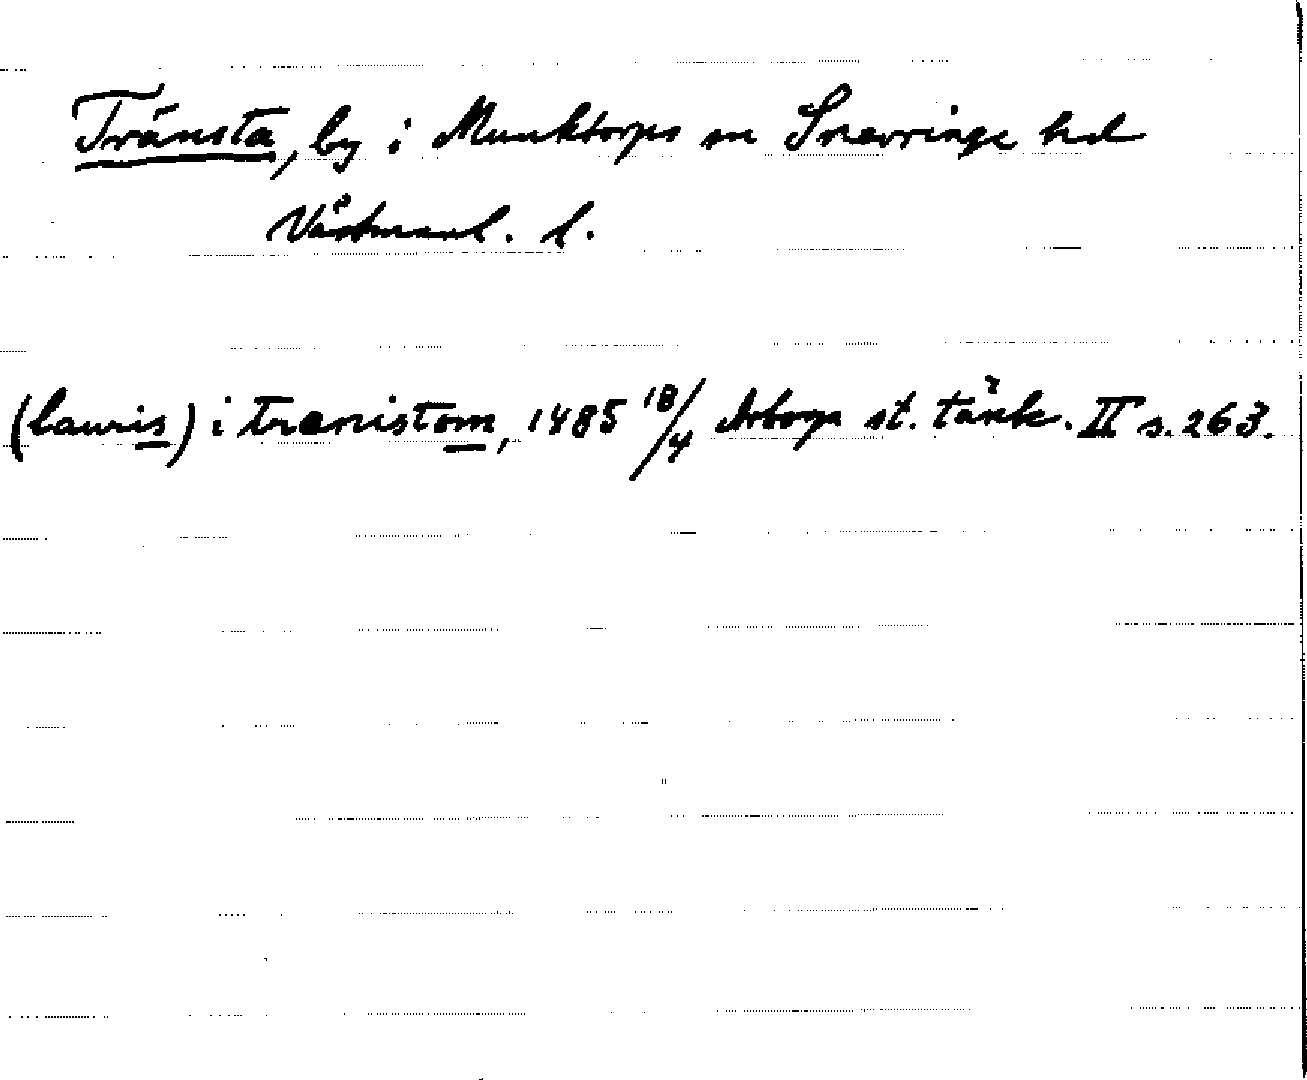 Tränsta, by i Munktorps sn Snevringe hd
Västmanl. l.
(lauris) i trænistom, 1485 18/4 Arboga st. tänk. II s. 263.